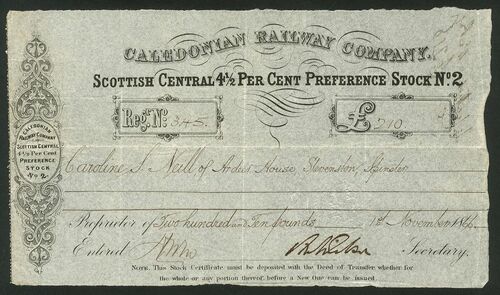 CALEDONIAN RAILWAY COMPANY.
SCOTTISH CENTRAL 4½ PER CENT PREFERENCE STOCK No. 2
Regd. No. 345.
£ 210
CALEDONIAN
RAILWAY COMPANY
SCOTTISH CENTRAL
4½ Per Cent
PREFERENCE
STOCK
No. 2.
Caroline S. Neill of House, Stevenston, Spinster
Proprietor of Two hundred and Ten pounds 1st November 1866.
Entered Secretary.
NOTE. This Stock Certificate must be deposited with the Deed of Transfer, whether for
the whole or any portion thereof, before a New One can be issued.